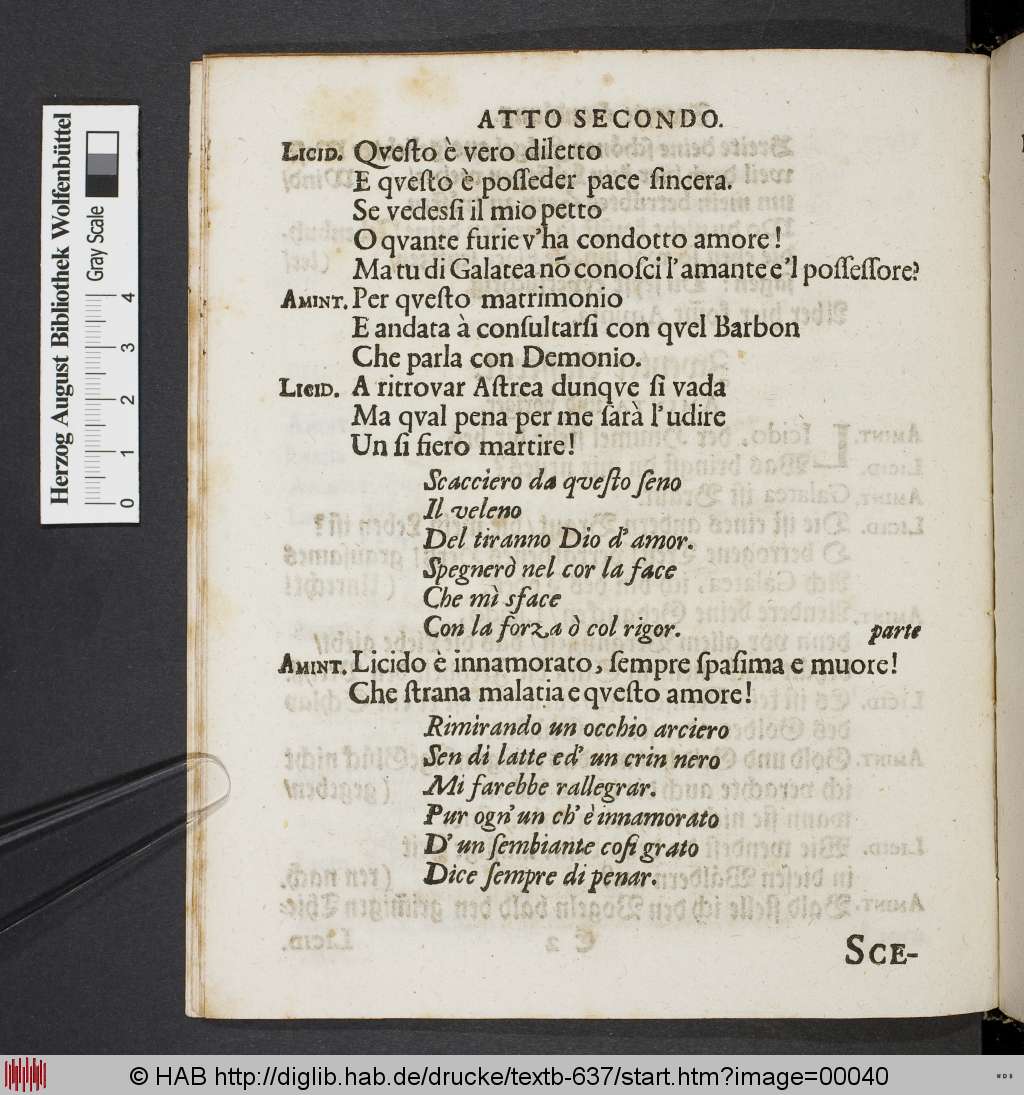 ATTO SECONDO.
LICID. Qveſto è vero diletto
E qveſto è poſſeder pace ſincera.
Se vedesſi il mio petto
O qvante furie v'ha condotto amore!
Ma tu di Galatea nõ conoſci l'amante e'l poſſeſſore?
AMINT. Per qveſto matrimonio
E andata à conſultarſi con qvel Barbon
Che parla con Demonio.
LICID. A ritrovar Aſtrea dunqve ſi vada
Ma qval pena per me ſarà l'udire
Un ſi fiero martire!
Scacciero da qveſto ſeno
Il veleno
Del tiranno Dio d'amor.
Spegnerò nel cor la face
Che mì sface
Con la forza ò col rigor. parte
AMINT. Licido è innamorato, ſempre ſpaſima e muore!
Che ſtrana malatia e qveſto amore!
Rimirando un occhio arciero
Sen di latte ed' un crin nero
Mi farebbe rallegrar.
Pur ogn' un ch' è innamorato
D' un ſembiante coſi grato
Dice ſempre di penar.
SCE-
Herzog August Bibliothek Wolfenbüttel
Gray Scale
0 1 2 3 4
© HAB http://diglib.hab.de/drucke/textb-637/start.htm?image=00040